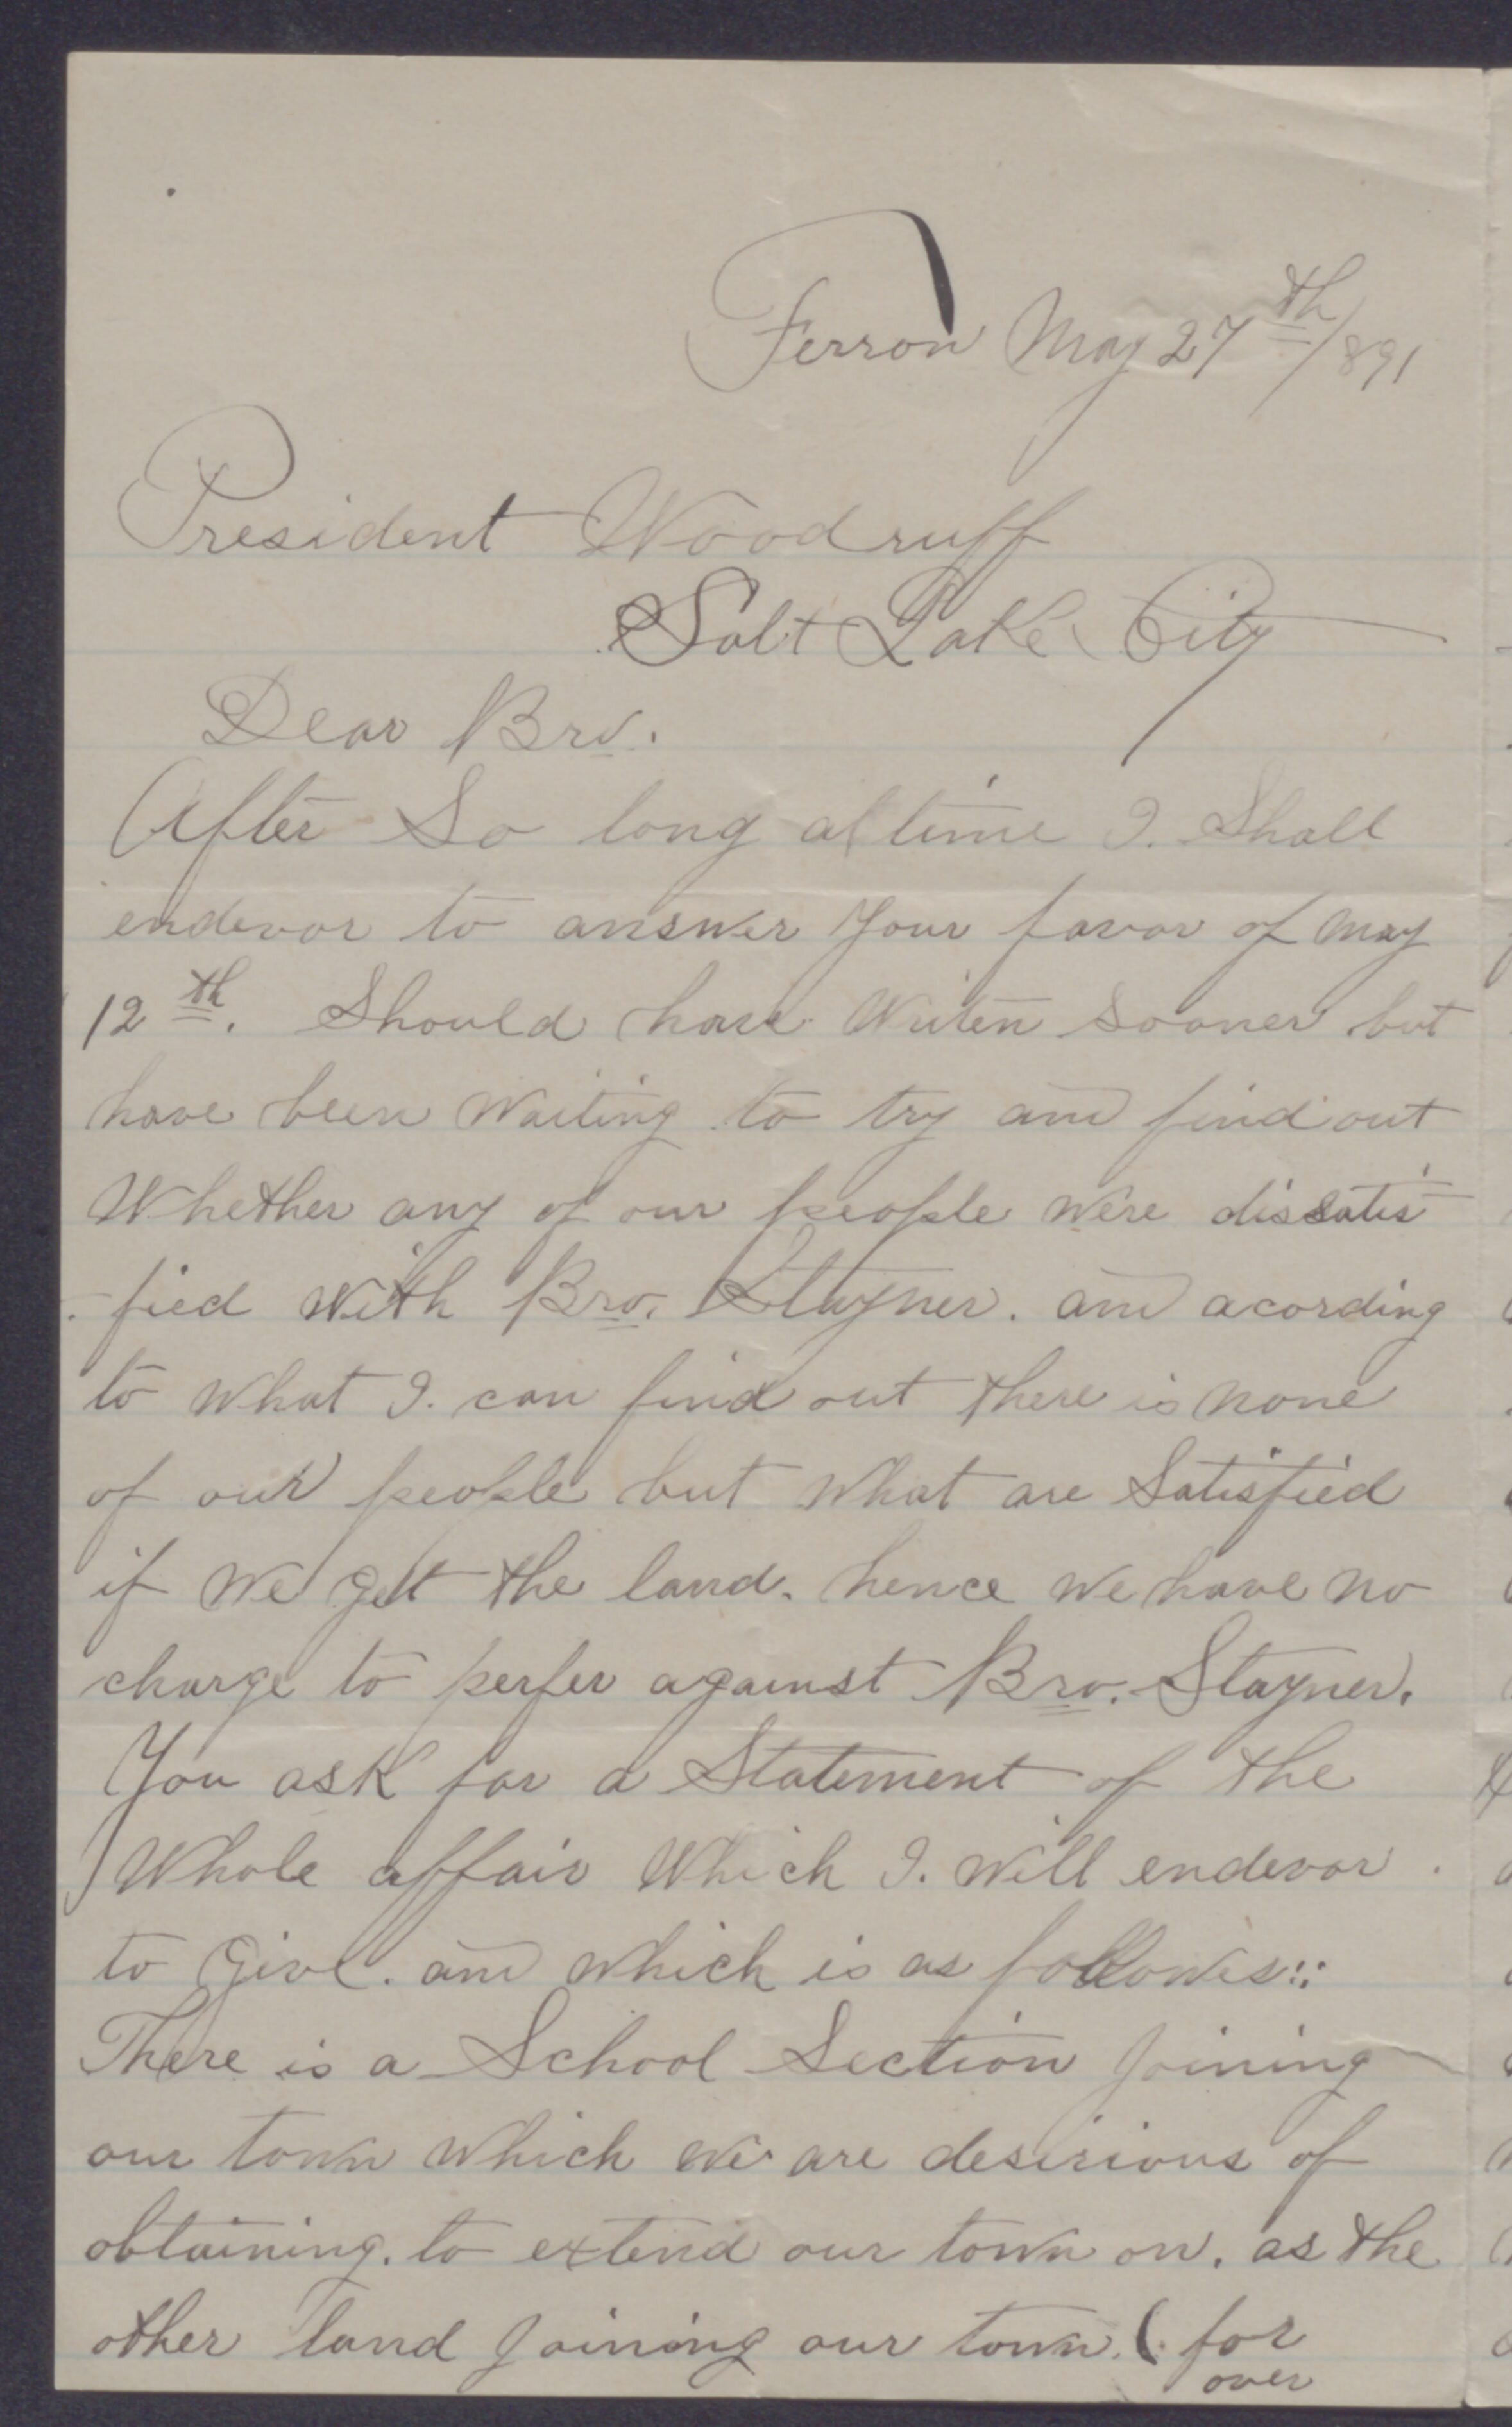 Ferron May 27th/891
President Woodruff
Salt Lake City
Dear Bro.
After So long a time I. Shall
endevor to answer Your favor of May
12th. Should have Writen Sooner but
have been Waiting to try and find out
Whether any of our people were dissatis
-fied with Bro. Stayner. and acording
to What I. can find out there is none
of our people but What are Satisfied
if We get the land. hence We have no
charge to perfer against Bro. Stayner.
You ask for a Statement of the
Whole affair Which I. Will endevor
to Give. and Which is as follows::
There is a School Section Joining
our town Which we are desirious of
obtaining. to extend our town on. as the
other land Joining our town. (for
over